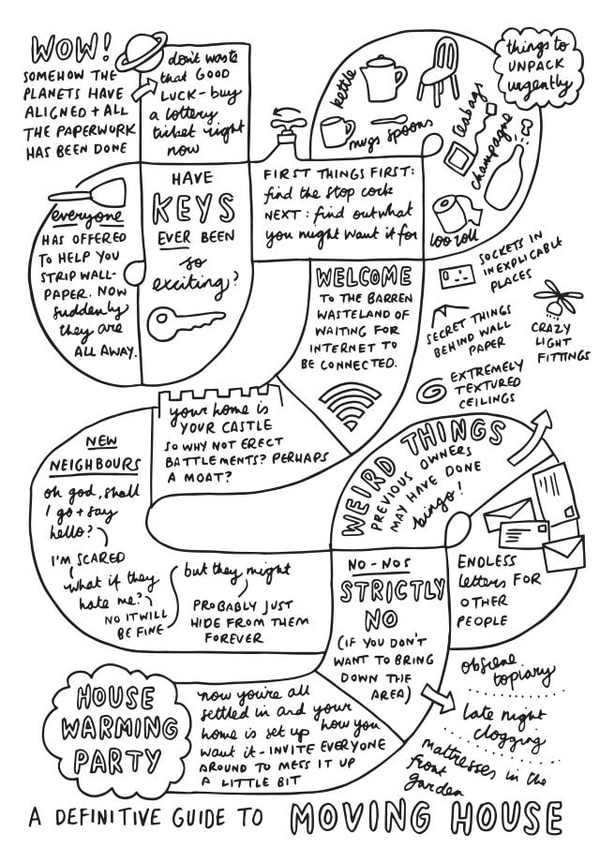 WOW!
SOMEHOW THE
PLANETS HAVE
ALIGNED + ALL
THE PAPERWORK
HAS BEEN DONE
don't waste
that GOOD
LUCK - buy
a lottery
ticket right
now
HAVE
KEYS
EVER BEEN
so
exciting?
everyone
HAS OFFERED
TO HELP YOU
STRIP WALL-
PAPER. NOW
suddenly
they are
ALL AWAY.
FIRST THINGS FIRST:
find the stop cock
NEXT: find out what
you might want it for
things to
UNPACK
urgently
kettle
mugs
spoons
teabags
champagne
loo roll
WELCOME
TO THE BARREN
WASTELAND OF
WAITING FOR
INTERNET TO
BE CONNECTED.
your home is
YOUR CASTLE
SO WHY NOT ERECT
BATTLEMENTS? PERHAPS
A MOAT?
NEW
NEIGHBOURS
oh god, shall
I go + say
hello?
I'M SCARED
what if they
hate me?
NO IT WILL
BE FINE
but they might
PROBABLY JUST
HIDE FROM THEM
FOREVER
WEIRD THINGS
PREVIOUS OWNERS
MAY HAVE DONE
bingo!
SOCKETS IN
INEXPLICABLE
PLACES
SECRET THINGS
BEHIND WALL
PAPER
CRAZY
LIGHT
FITTINGS
EXTREMELY
TEXTURED
CEILINGS
ENDLESS
letters FOR
OTHER
PEOPLE
NO-NOS
STRICTLY
NO
(IF YOU DON'T
WANT TO BRING
DOWN THE
AREA)
obscene
topiary
late night
clogging
mattresses in the
front
garden
HOUSE
WARMING
PARTY
now you're all
settled in and your
home is set up how you
want it - INVITE EVERYONE
AROUND TO MESS IT UP
A LITTLE BIT
A DEFINITIVE GUIDE TO MOVING HOUSE